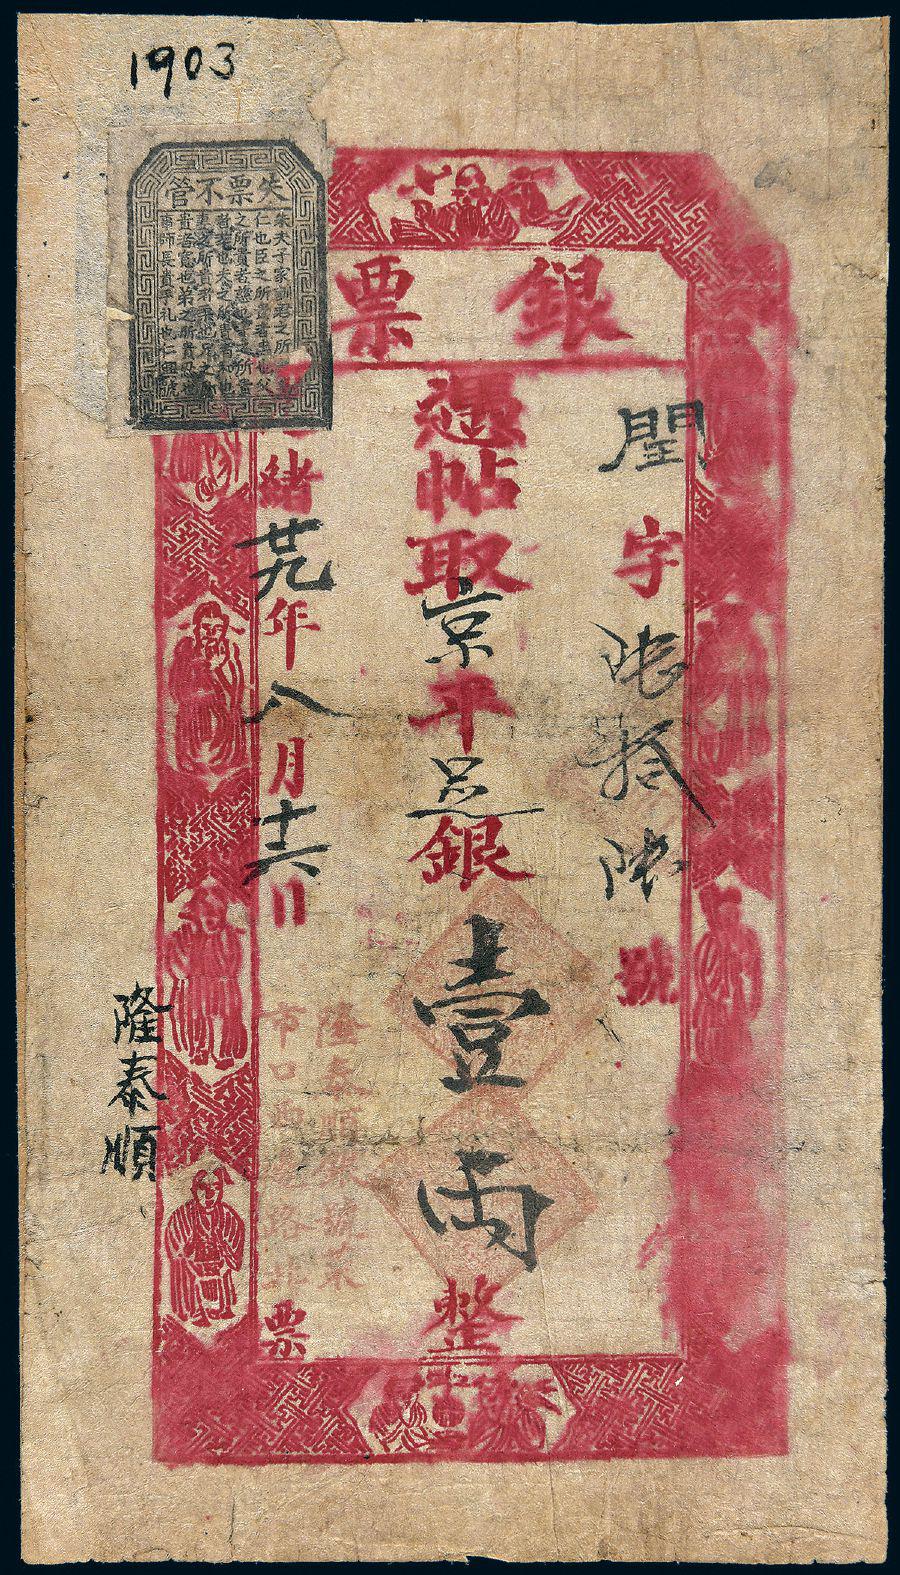 1903
失票不管
朱夫子家訓君之所貴者
仁也臣之所貴者忠也父
之所貴者慈也子之所貴
者孝也夫之所貴者和也
妻之所貴者柔也兄之所
貴者寬也弟之所貴
事師長貴乎禮也
銀票
閏字陸拾陸號
憑帖取京平足銀壹兩整
緒廿九年八月十六日
隆泰順銀號菜
市口西馬路北
票
隆泰順